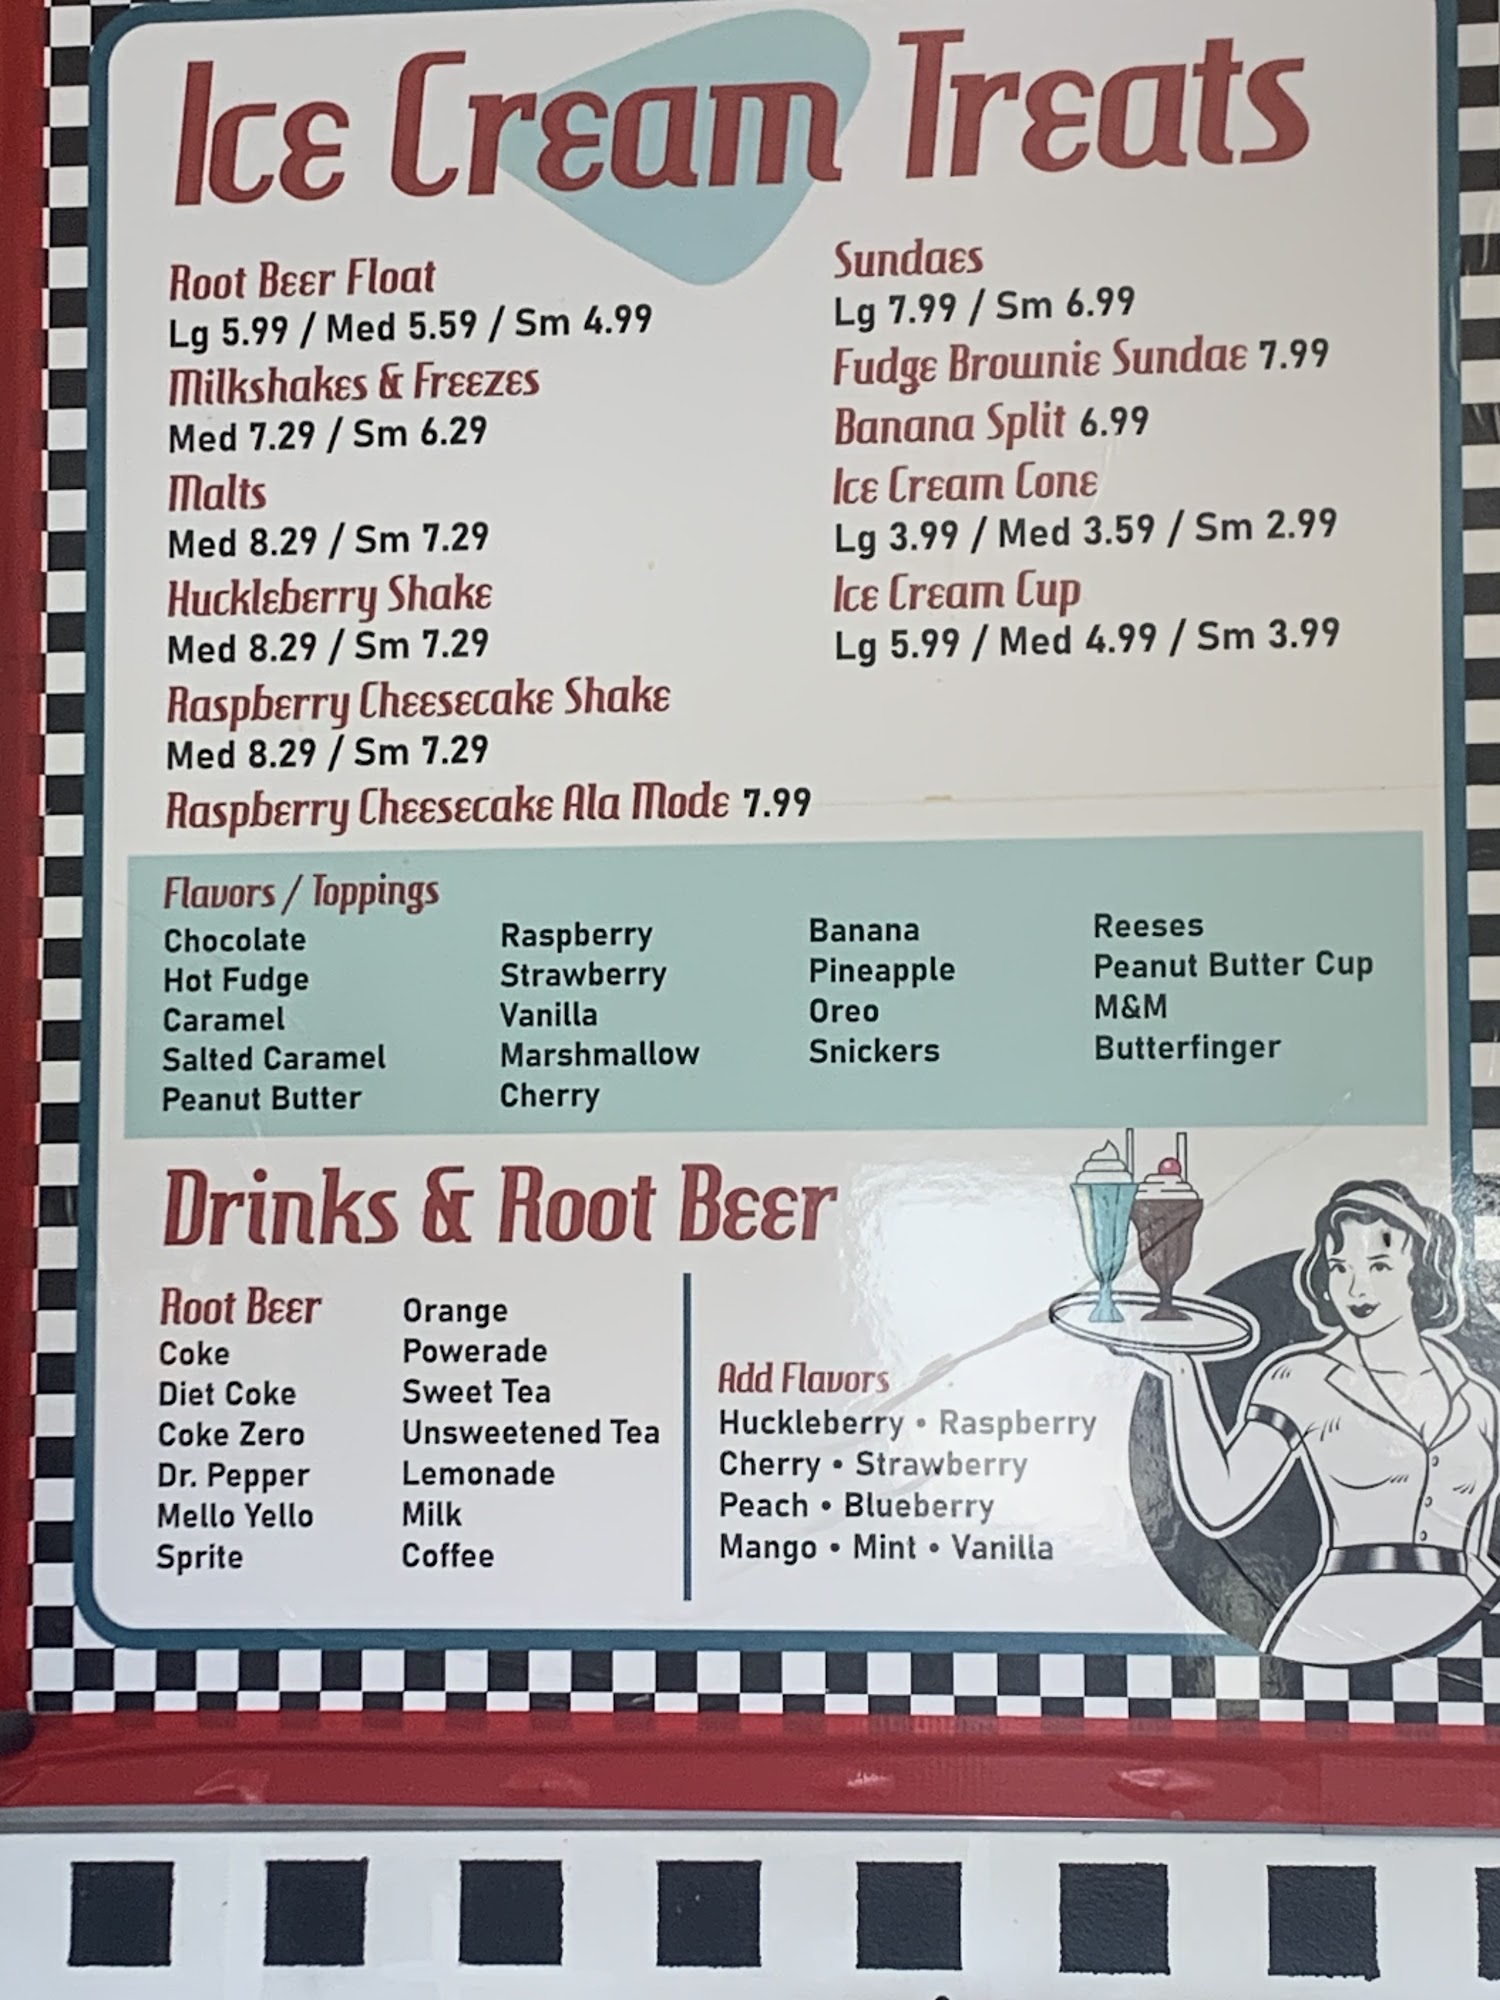 Ice Cream Treats
Root Beer Float
Lg 5.99 / Med 5.59 / Sm 4.99
Milkshakes & Freezes
Med 7.29 / Sm 6.29
Malts
Med 8.29 / Sm 7.29
Huckleberry Shake
Med 8.29 / Sm 7.29
Raspberry Cheesecake Shake
Med 8.29 / Sm 7.29
Raspberry Cheesecake Ala Mode 7.99
Sundaes
Lg 7.99 / Sm 6.99
Fudge Brownie Sundae 7.99
Banana Split 6.99
Ice Cream Cone
Lg 3.99 / Med 3.59 / Sm 2.99
Ice Cream Cup
Lg 5.99 / Med 4.99 / Sm 3.99
Flavors / Toppings
Chocolate
Hot Fudge
Caramel
Salted Caramel
Peanut Butter
Raspberry
Strawberry
Vanilla
Marshmallow
Cherry
Banana
Pineapple
Oreo
Snickers
Reeses
Peanut Butter Cup
M&M
Butterfinger
Drinks & Root Beer
Root Beer
Coke
Diet Coke
Coke Zero
Dr. Pepper
Mello Yello
Sprite
Orange
Powerade
Sweet Tea
Unsweetened Tea
Lemonade
Milk
Coffee
Add Flavors
Huckleberry • Raspberry
Cherry • Strawberry
Peach • Blueberry
Mango • Mint • Vanilla